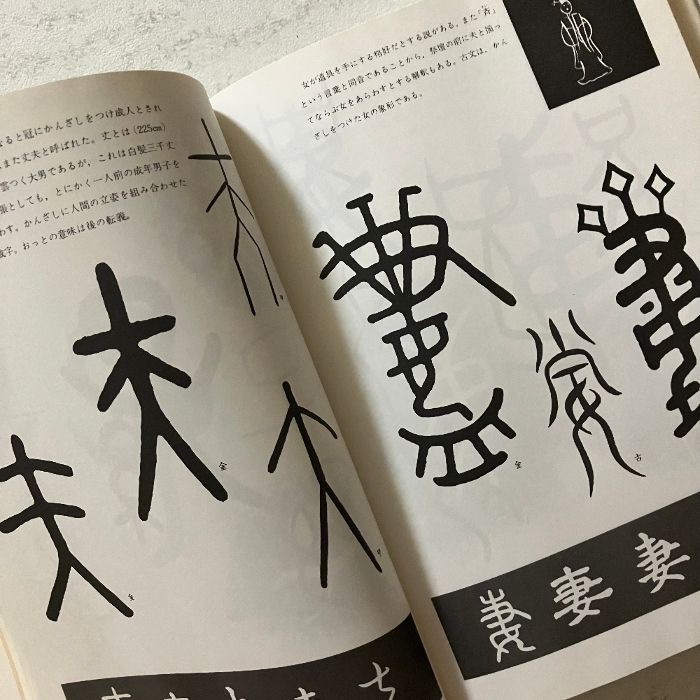 なると冠にかんざしをつけ成人とされ
また丈夫と呼ばれた。丈とは(225cm)
雲つく大男であるが、これは白髪三千丈
張としても、とにかく一人前の成年男子を
わす。かんざしに人間の立姿を組み合わせた
成字。おっとの意味は後の転義。
夫
夫
夫
金
夫
甲
金
女が道具を手にする格好だとする説がある。また「斉」
という言葉と同音であることから、祭壇の前に夫と揃っ
てならぶ女をあらわすとする解釈もある。古文は、かん
ざしをつけた女の象形である。
金
古
妻 妻 妻